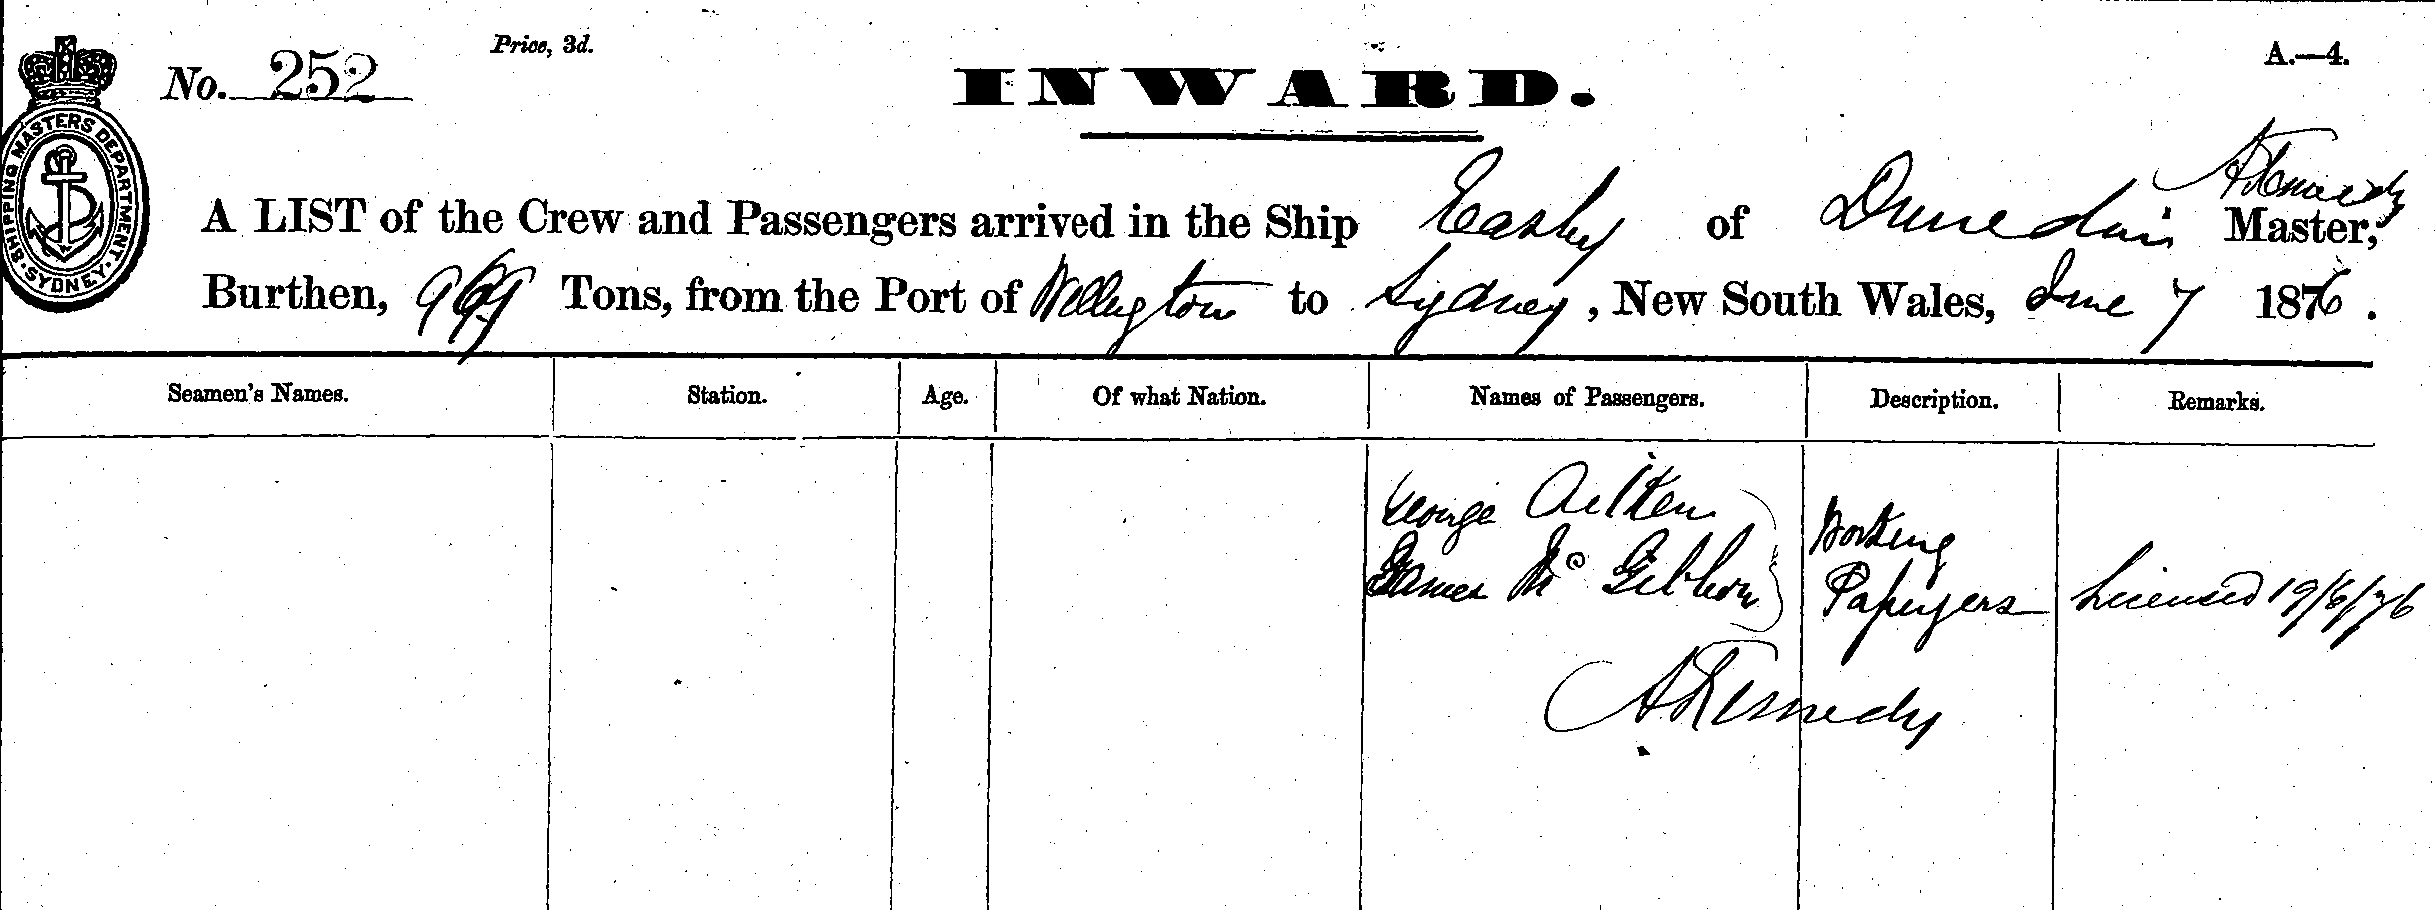 Price, 3d.
A.—4.
No. 252
INWARD.
SHIPPING MASTERS DEPARTMENT. SYDNEY.
A Kennedy
A LIST of the Crew and Passengers arrived in the Ship Easby of Dunedin Master,
Burthen, 969 Tons, from the Port of Wellington to Sydney, New South Wales, June 7 1876.
Seamen's Names. Station. Age. Of what Nation. Names of Passengers. Description. Remarks.
George Aitken
James Mc Gibbon
Working
Passengers
Licensed 19/6/76
A Kennedy